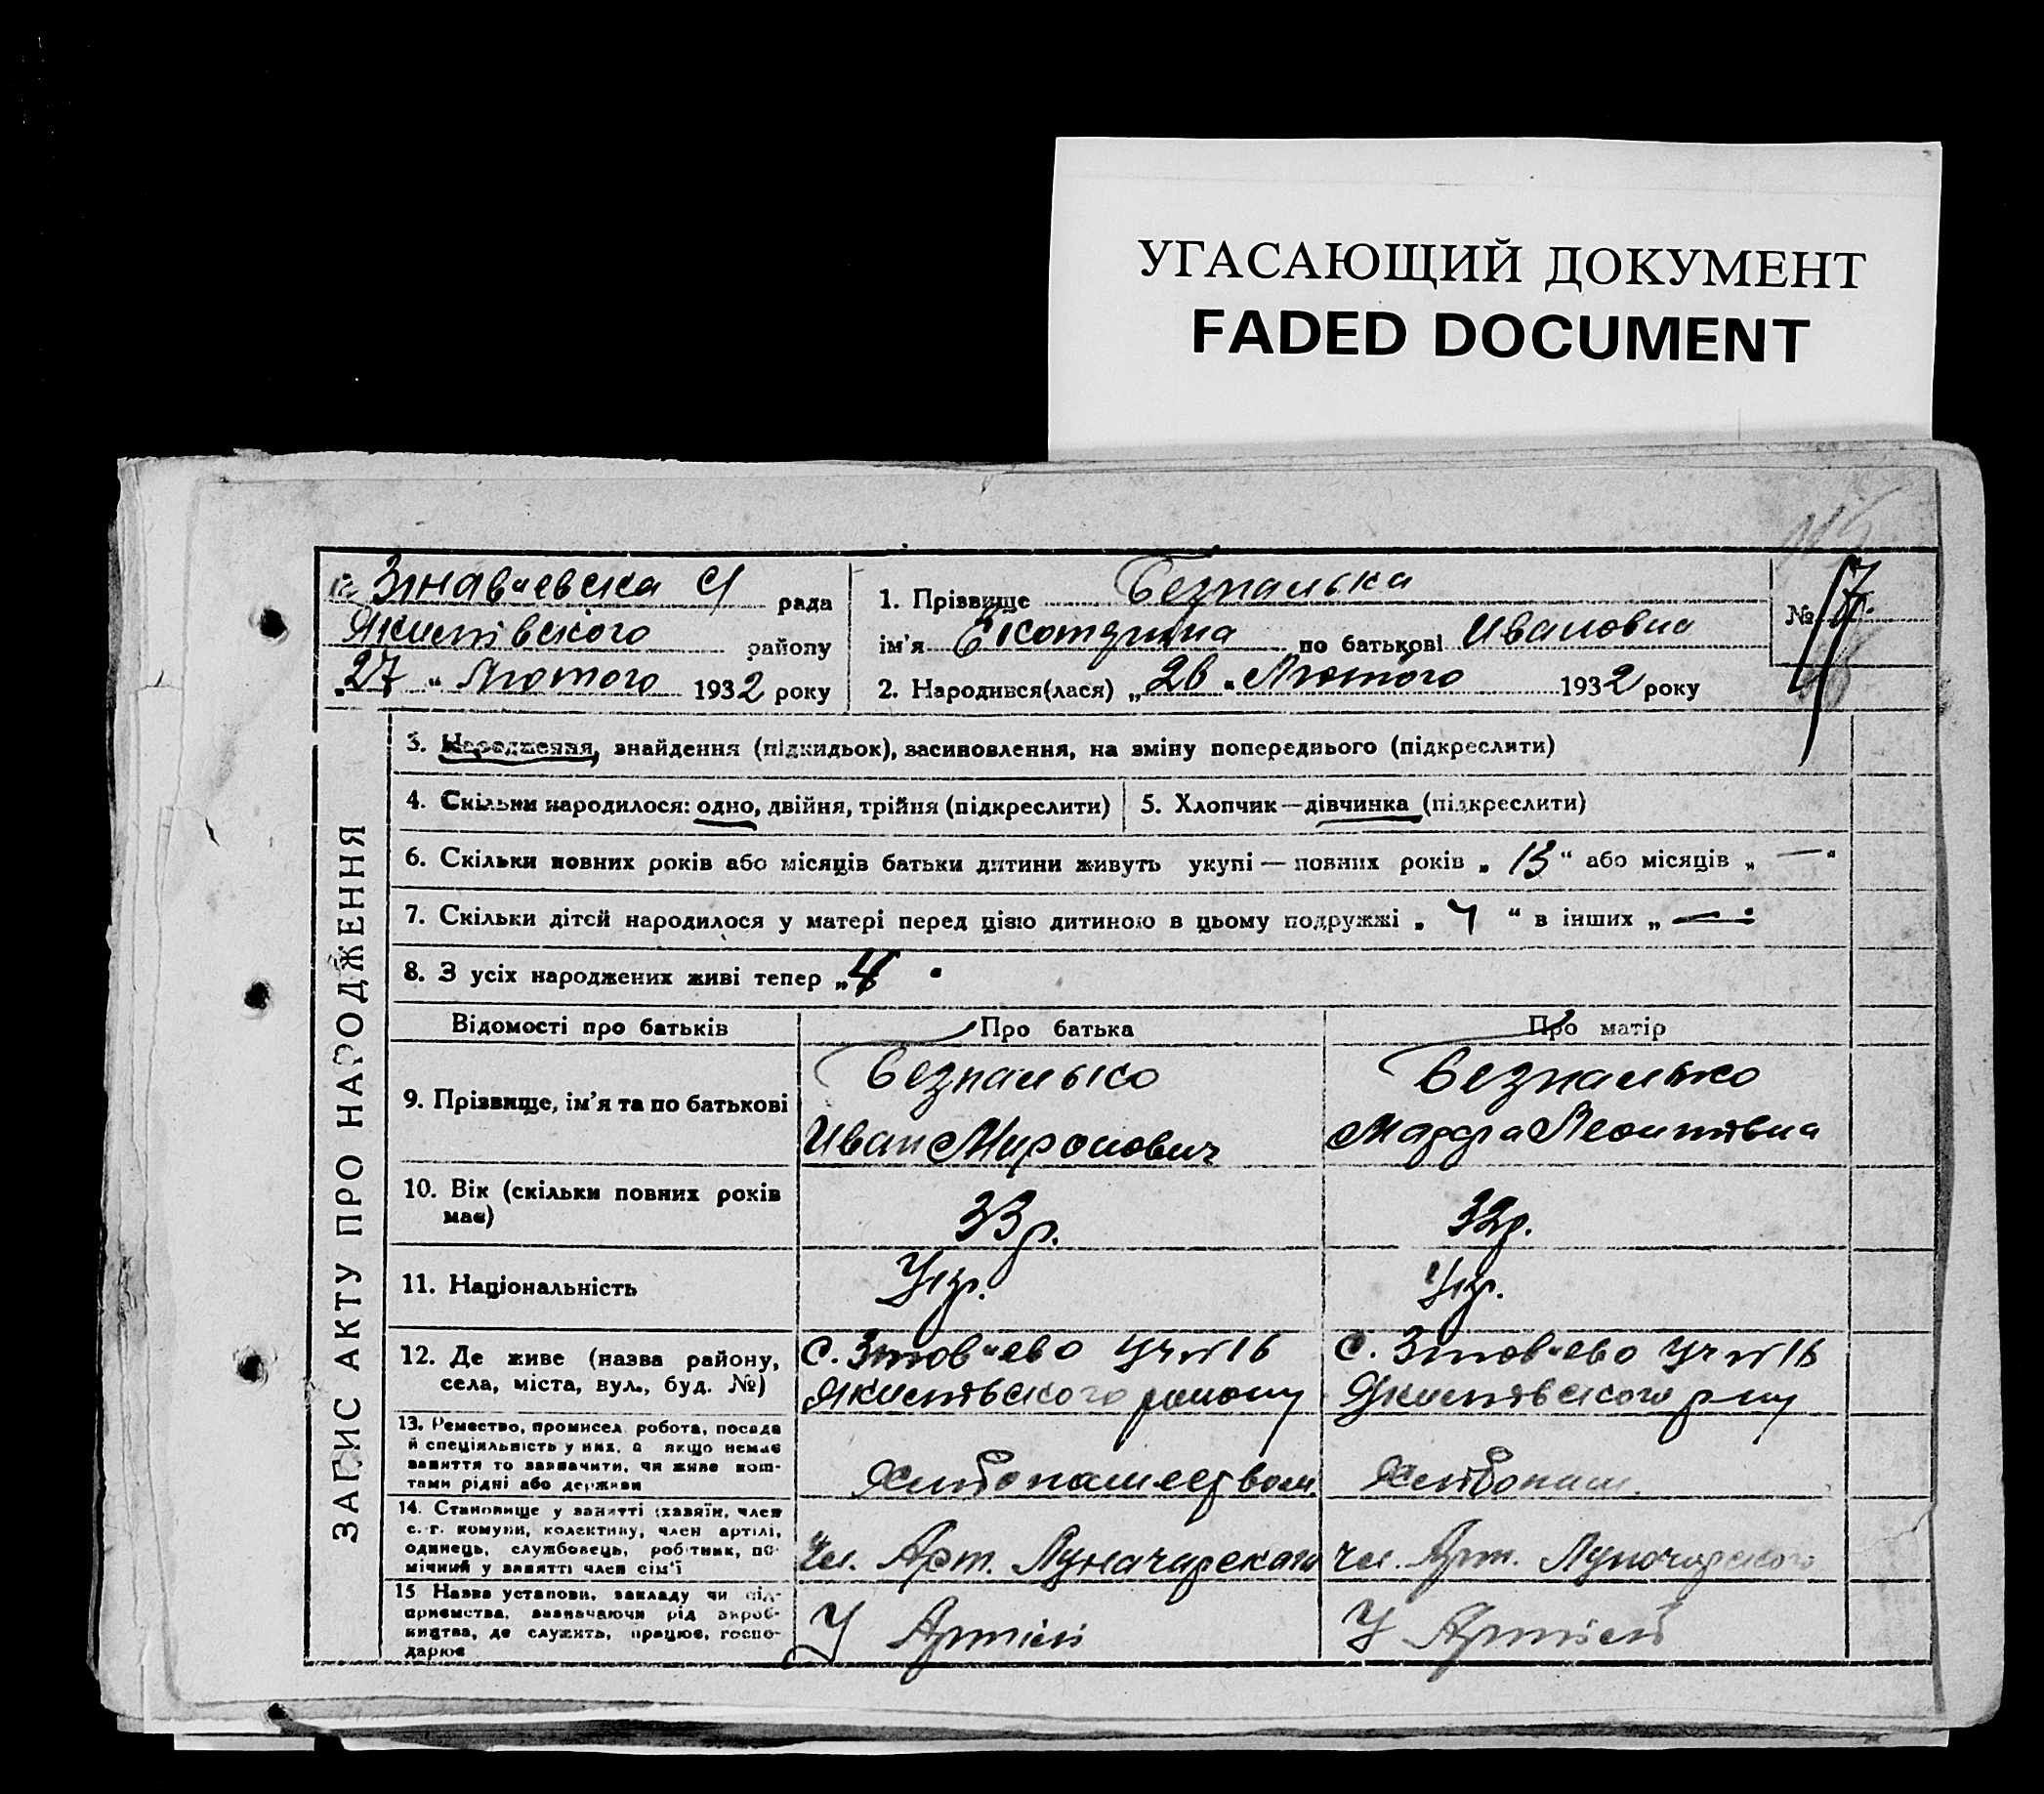 УГАСАЮЩИЙ ДОКУМЕНТ
FADED DOCUMENT
ЗАПИС АКТУ ПРО НАРОДЖЕННЯ
рада
Якимівського району
„27“ Лютого 1932 року
1. Прізвище Безпалька
ім'я Екотерина по батькові Ивановна
2. Народився(лася) „26“ Лютого 1932 року
№ 17
3. Народження, знайдення (підкидьок), засиновлення, на зміну попереднього (підкреслити)
4. Скільки народилося: одно, двійня, трійня (підкреслити)
5. Хлопчик—дівчинка (підкреслити)
6. Скільки повних років або місяців батьки дитини живуть укупі — повних років „13“ або місяців „—“
7. Скільки дітей народилося у матері перед цією дитиною в цьому подружжі „ “ в інших „—“
8. З усіх народжених живі тепер „4
Відомості про батьків
Про батька
Про матір
9. Прізвище, ім'я та по батькові
Безпалько
Иван Миронович
Безпалько
Марфа Леонтівна
10. Вік (скільки повних років має)
33 р.
32 р.
11. Національність
Укр.
Укр.
12. Де живе (назва району,
села, міста, вул., буд. №)
с. Уч №16
Якимівського району
с. Уч №16
Якимівського р-ну
13. Ремество, промисел, робота, посада
й спеціяльність у них, а якщо немає
заняття то зазначити, чи живе кош-
тами рідні або держави
Хлібопашеством
Хлібопаш.
14. Становище у занятті (хазяїн, член
с.-г. комуни, колективу, член артілі,
одинець, службовець, робітник, по-
мічний у занятті член сім'ї
Чл. Арт. Луначарского
Чл. Арт. Луначарского
15 Назва установи, закладу чи під-
приємства, зазначаючи рід вироб-
ництва, де служить, працює, госпо-
дарює
У Артілі
У Артілі